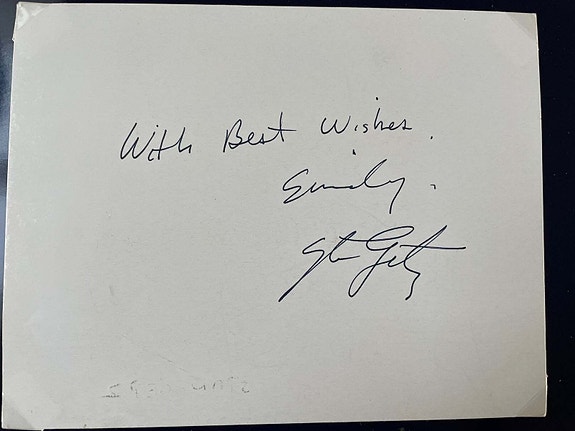 With Best Wishes.
Sincerely,
Stan Getz